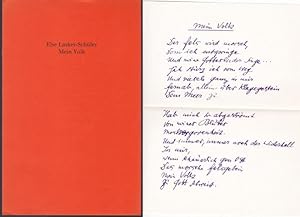 Else Lasker-Schüler
Mein Volk
Mein Volk
Der Fels wird morsch,
Dem ich entspringe
Und meine Gotteslieder singe...
Jäh stürz ich vom Weg
Und riesele ganz in mir
Fernab, allein über Klagegestein
Dem Meer zu.
Hab mich so abgeströmt
Von meines Blutes
Mostvergorenheit.
Und immer, immer noch der Widerhall
In mir,
Wenn schauerlich gen Ost
Das morsche Felsgebein
Mein Volk
Zu Gott schreit.